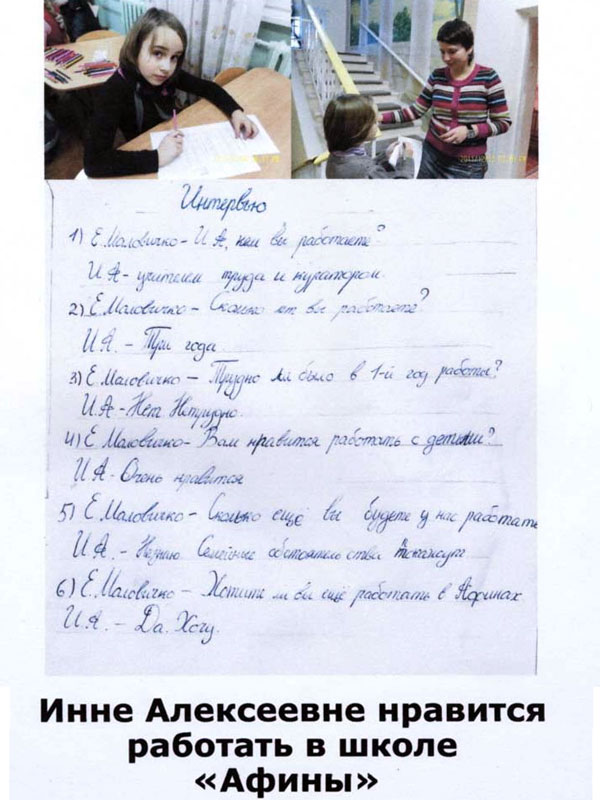 Интервью
1) Е. Маловичко - И.А, кем вы работаете?
И.А - учителем труда и куратором.
2) Е. Маловичко - Сколько лет вы работаете?
И.А. - Три года
3) Е. Маловичко - Трудно ли было в 1-й год работы?
И.А - Нет. Нетрудно.
4) Е. Маловичко - Вам нравится работать с детьми?
И.А - Очень нравится
5) Е. Маловичко - Сколько ещё вы будете у нас работать
И.А. - Незнаю Семейные обстоятельства покажут
6) Е. Маловичко - Хотите ли вы ещё работать в Афинах.
И.А. - Да. Хочу.
Инне Алексеевне нравится
работать в школе
«Афины»